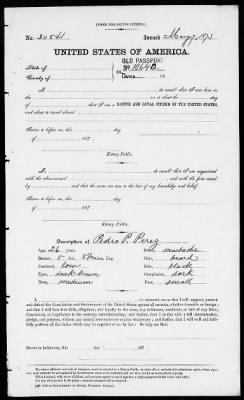 [FORM FOR NATIVE CITIZEN.]
No. 30541 Issued May 9, 1873
UNITED STATES OF AMERICA.
OLD PASSPORT
State of
No 10640
County of
I, do swear that I was born in the
on or about the day
of , that I am a NATIVE AND LOYAL CITIZEN OF THE UNITED STATES,
and about to travel abroad
Sworn to before me, this day
of 187 .
Notary Public.
I, do swear that I am acquainted with
the above-named and with the facts stated
by and that the same are true to the best of my knowledge and belief.
Sworn to before me, this day
of 187 .
Notary Public.
Description of Pedro P. Perez
Age, 26 years mustache
Stature, 5 feet inches, Eng. beard
Forehead, low Hair, black
Eyes, dark brown Complexion, dark
Nose, medium Face, small
I, do solemnly swear that I will support, protect,
and defend the Constitution and Government of the United States against all enemies, whether domestic or foreign;
and that I will bear true faith, allegiance, and loyalty to the same, any ordinance, resolution, or law of any State,
Convention, or Legislature to the contrary notwithstanding; and further, that I do this with a full determination,
pledge, and purpose, without any mental reservation or evasion whatsoever; and further, that I will well and faith-
fully perform all the duties which may be required of me by law. So help me God.
Sworn to before me, this day of 187 .